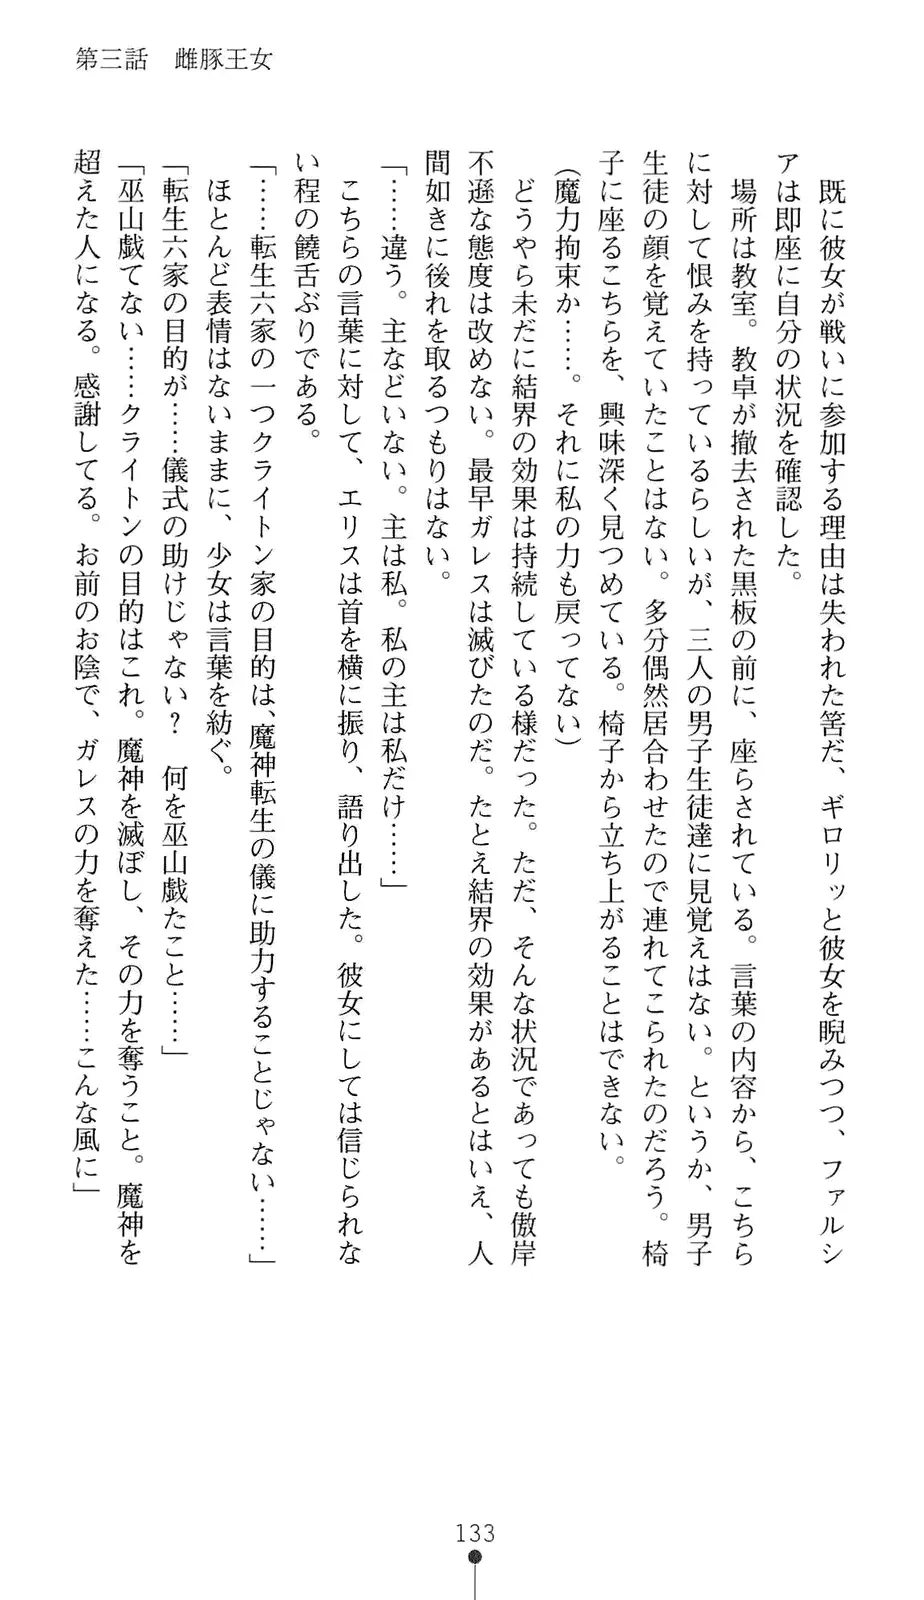 第三話　雌豚王女
　既に彼女が戦いに参加する理由は失われた筈だ、ギロリッと彼女を睨みつつ、ファルシ
アは即座に自分の状況を確認した。
　場所は教室。教卓が撤去された黒板の前に、座らされている。言葉の内容から、こちら
に対して恨みを持っているらしいが、三人の男子生徒達に見覚えはない。というか、男子
生徒の顔を覚えていたことはない。多分偶然居合わせたので連れてこられたのだろう。椅
子に座るこちらを、興味深く見つめている。椅子から立ち上がることはできない。
（魔力拘束か……。それに私の力も戻ってない）
　どうやら未だに結界の効果は持続している様だった。ただ、そんな状況であっても傲岸
不遜な態度は改めない。最早ガレスは滅びたのだ。たとえ結界の効果があるとはいえ、人
間如きに後れを取るつもりはない。
「……違う。主などいない。主は私。私の主は私だけ……」
　こちらの言葉に対して、エリスは首を横に振り、語り出した。彼女にしては信じられな
い程の饒舌ぶりである。
「……転生六家の一つクライトン家の目的は、魔神転生の儀に助力することじゃない……」
　ほとんど表情はないままに、少女は言葉を紡ぐ。
「転生六家の目的が……儀式の助けじゃない？　何を巫山戯たこと……」
「巫山戯てない……クライトンの目的はこれ。魔神を滅ぼし、その力を奪うこと。魔神を
超えた人になる。感謝してる。お前のお陰で、ガレスの力を奪えた……こんな風に」
133